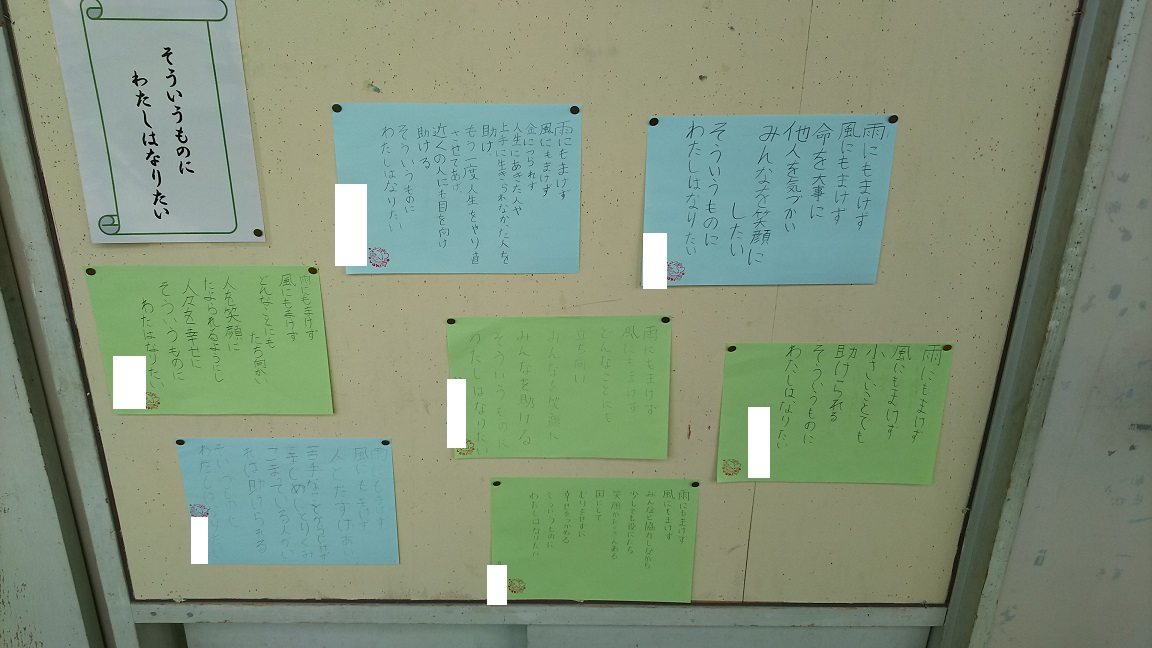 そういうものに
わたしはなりたい
雨にもまけず
風にもまけず
命を大事に
他人を気づかい
みんなを笑顔に
したい
そういうものに
わたしはなりたい
雨にもまけず
風にもまけず
金につられず
人生にあきた人や
上手に生きられなかった人を
助け
もう一度人生をやり直
させてあげ
近くの人にも目を向け
助ける
そういうものに
わたしはなりたい
雨にもまけず
風にもまけず
どんなことにも
たち向かい
人を笑顔に
たよられるようにし
人々を幸せに
そういうものに
わたはなりたい
雨にもまけず
風にもまけず
どんなことにも
立ち向い
みんなを笑顔に
みんなを助ける
そういうものに
わたしはなりたい
雨にもまけず
風にもまけず
小さいことでも
助けられる
そういうものに
わたしはなりたい
風にもまけず
雨にもまけず
風にもまけず
みんなと協力しながら
少しでも役にたち
そういうものに
わたしはなりたい